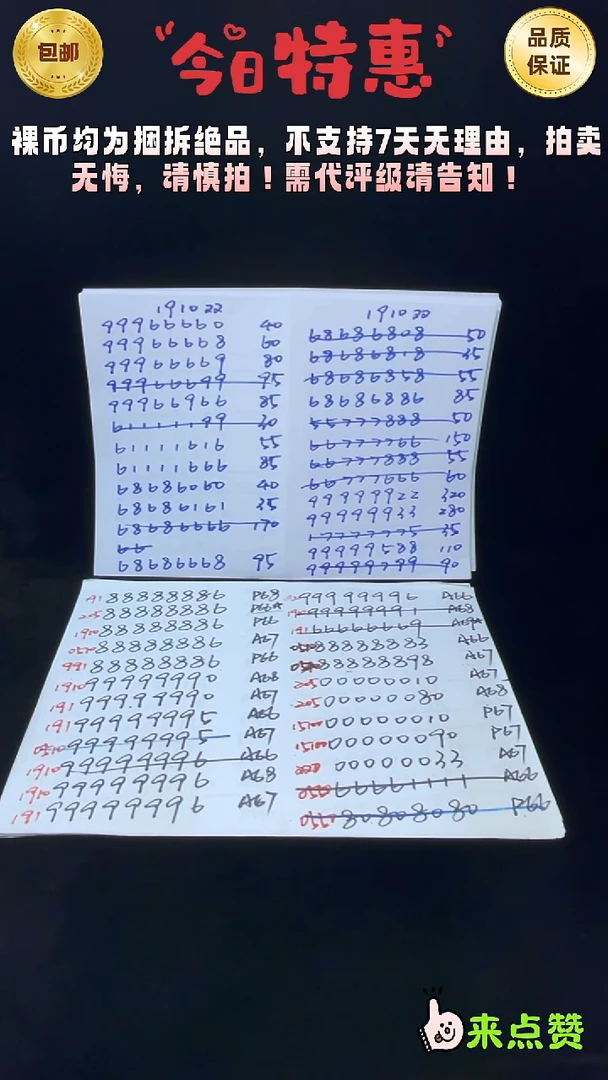 包邮
"今日特惠"
品质
保证
裸币均为捆拆绝品，不支持7天无理由，拍卖
无悔，请慎拍！需代评级请告知！
191022
99966660 40
99966668 60
99966669 80
99966699 95
99966966 85
61111199 30
61111616 55
61111666 85
68686060 40
68686161 35
68686666 170
66
68686668 95
191022
68686808 50
68686818 35
68686858 55
68686886 85
55777888 50
66777766 150
66777888 55
66777666 60
99999922 320
99999933 280
17777775 35
99999588 110
99999799 90
9188888886 P68
20588888886 P66★
191088888886 P66
052088888886 A67
99188888886 P66
191099999990 A68
19199999990 A67
19199999995 A66
051099999995 A67
191099999996 A66
191099999996 A68
19199999996 A67
99999996 A66
99999991 A68
19166666669 A69★
88888883 A66
88888898 A67
20500000010 A67
20500000080 A68
151000000010 P67
151000000090 P67
00000033 A67
66661111 A66
80808080 P66
来点赞